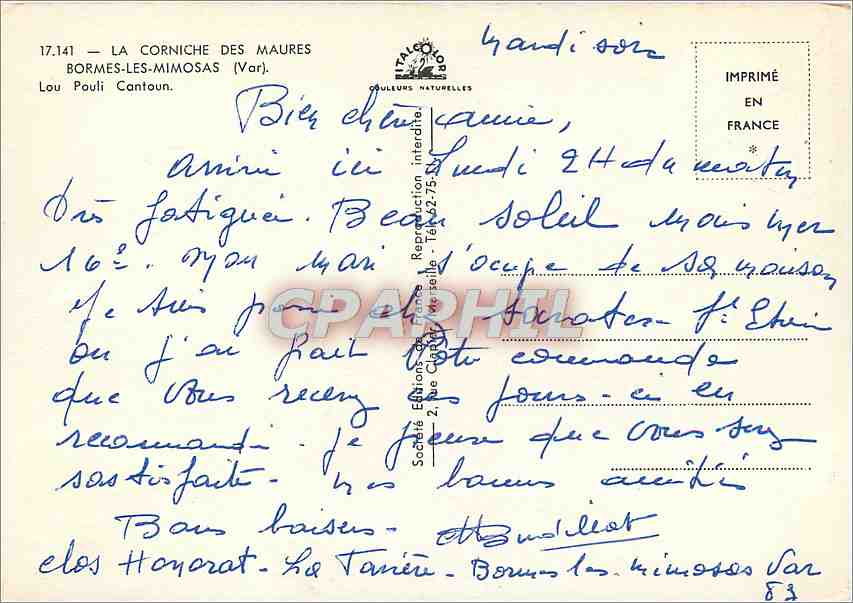 17.141 — LA CORNICHE DES MAURES
BORMES-LES-MIMOSAS (Var).
Lou Pouli Cantoun.
ITALCOLOR
COULEURS NATURELLES
IMPRIMÉ
EN
FRANCE
*
Société Editions de France Reproduction interdite.
2, Rue Clapier Marseille - Tél. 62-75-51
CPAPHIL
Mardi soir
Bien chère amie,
arrivée ici Lundi 2H du matin
très fatiguée. Beau soleil mais mer
16°. Mon mari s'occupe de sa maison
Je suis passée chez St Etienne
ou j'ai fait votre commande
que vous recevrez ces jours-ci en
recommandé. Je pense que vous serez
satisfaite - mes bonnes amitiés
Bons baisers -
clos Honorat - La Tanière - Bormes les mimosas Var
83